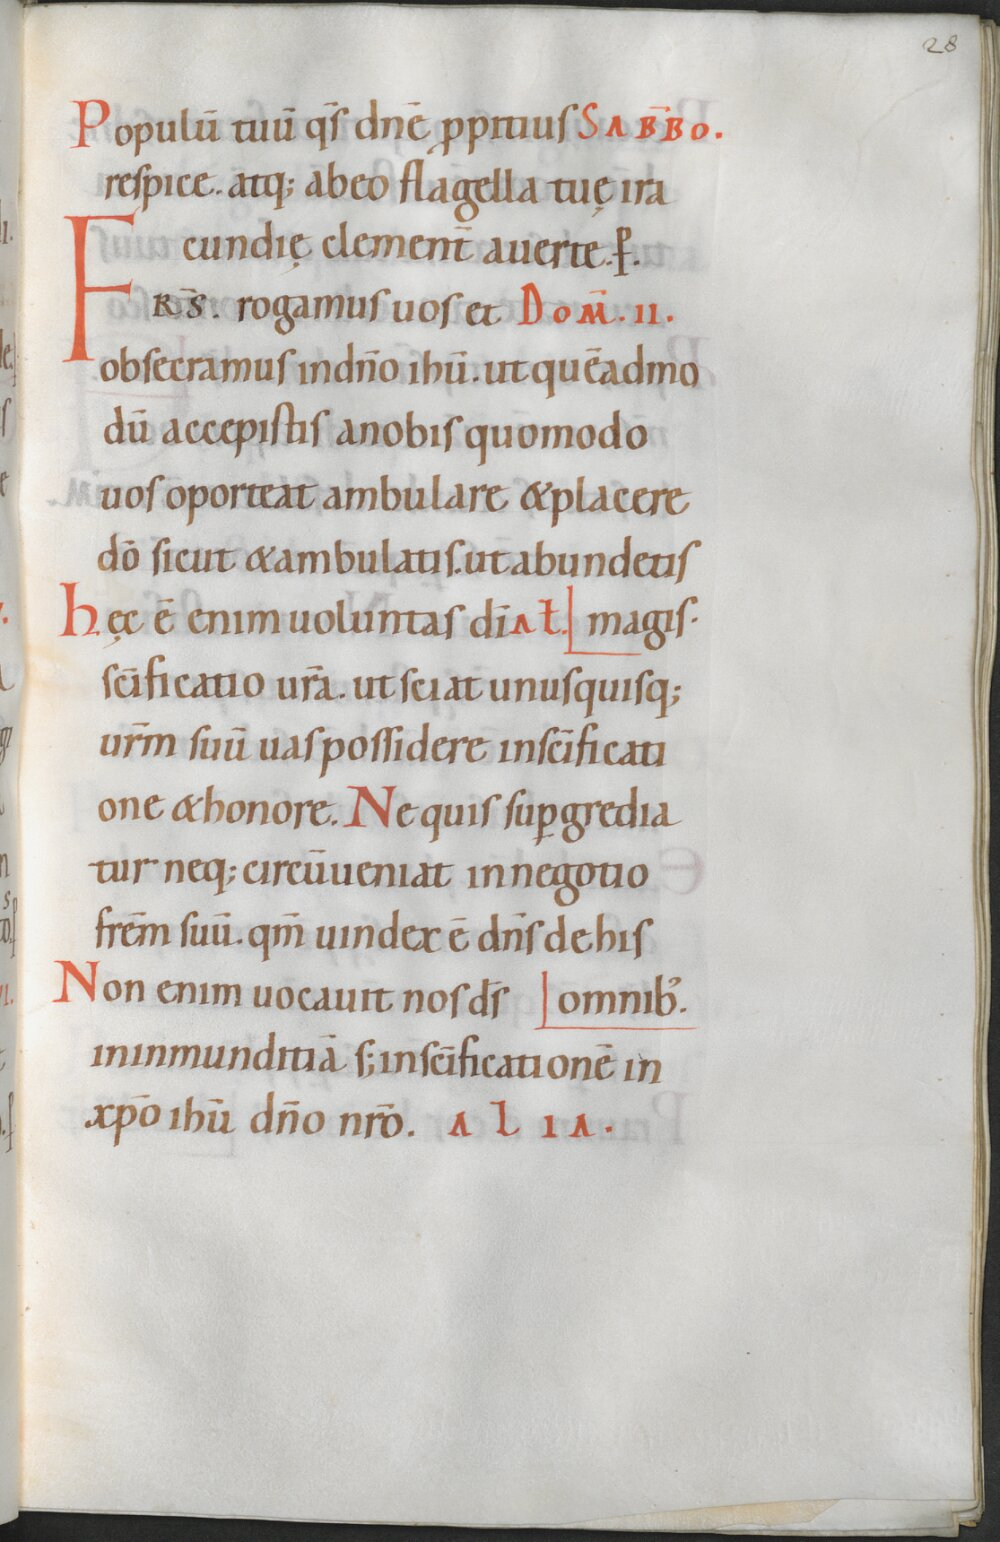 28
Populū tuū q̄s dn̄e ꝓpitius SABB̄O.
respice. atq; ab eo flagella tuę ira
cundię clement̄ auerte. ꝑ.
FRS̄. rogamus uos et DOM̄. II.
obsecramus in dn̄o ihū. ut quēadmo
dū accepistis a nobis quomodo
uos oporteat ambulare & placere
dō sicut & ambulatis. ut abundetis
hęc ē enim uoluntas dī AŁ. magis.
sc̄ificatio ur̄a. ut sciat unusquisq;
ur̄m suū uas possidere in sc̄ificati
one & honore. Ne quis suꝑgredia
tur neq; circūueniat in negotio
fr̄em suū. qm̄ uindex ē dn̄s de his
Non enim uocauit nos ds̄ omnib;.
in inmunditiā s; in sc̄ificationē in
xp̄o ihū dn̄o nr̄o. ALIA.